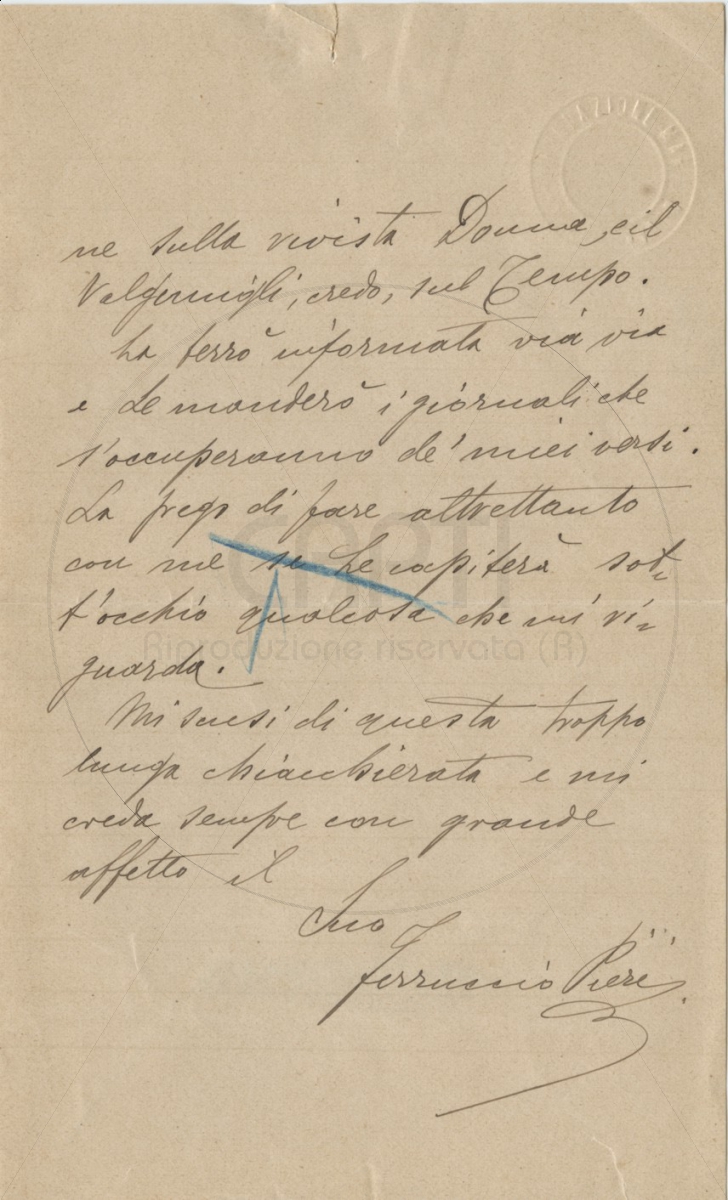 ne sulla rivista Donna, e il
Valgimigli, credo, sul Tempo.
La terrò informata via via
e Le manderò i giornali che
s'occuperanno de' miei versi.
La prego di fare altrettanto
con me se Le capiterà sot=
t'occhio qualcosa che mi ri=
guarda.
Mi scusi di questa troppo
lunga chiacchierata e mi
creda sempre con grande
affetto il
Suo
Ferruccio Pieri
CARTI
Riproduzione riservata (R)